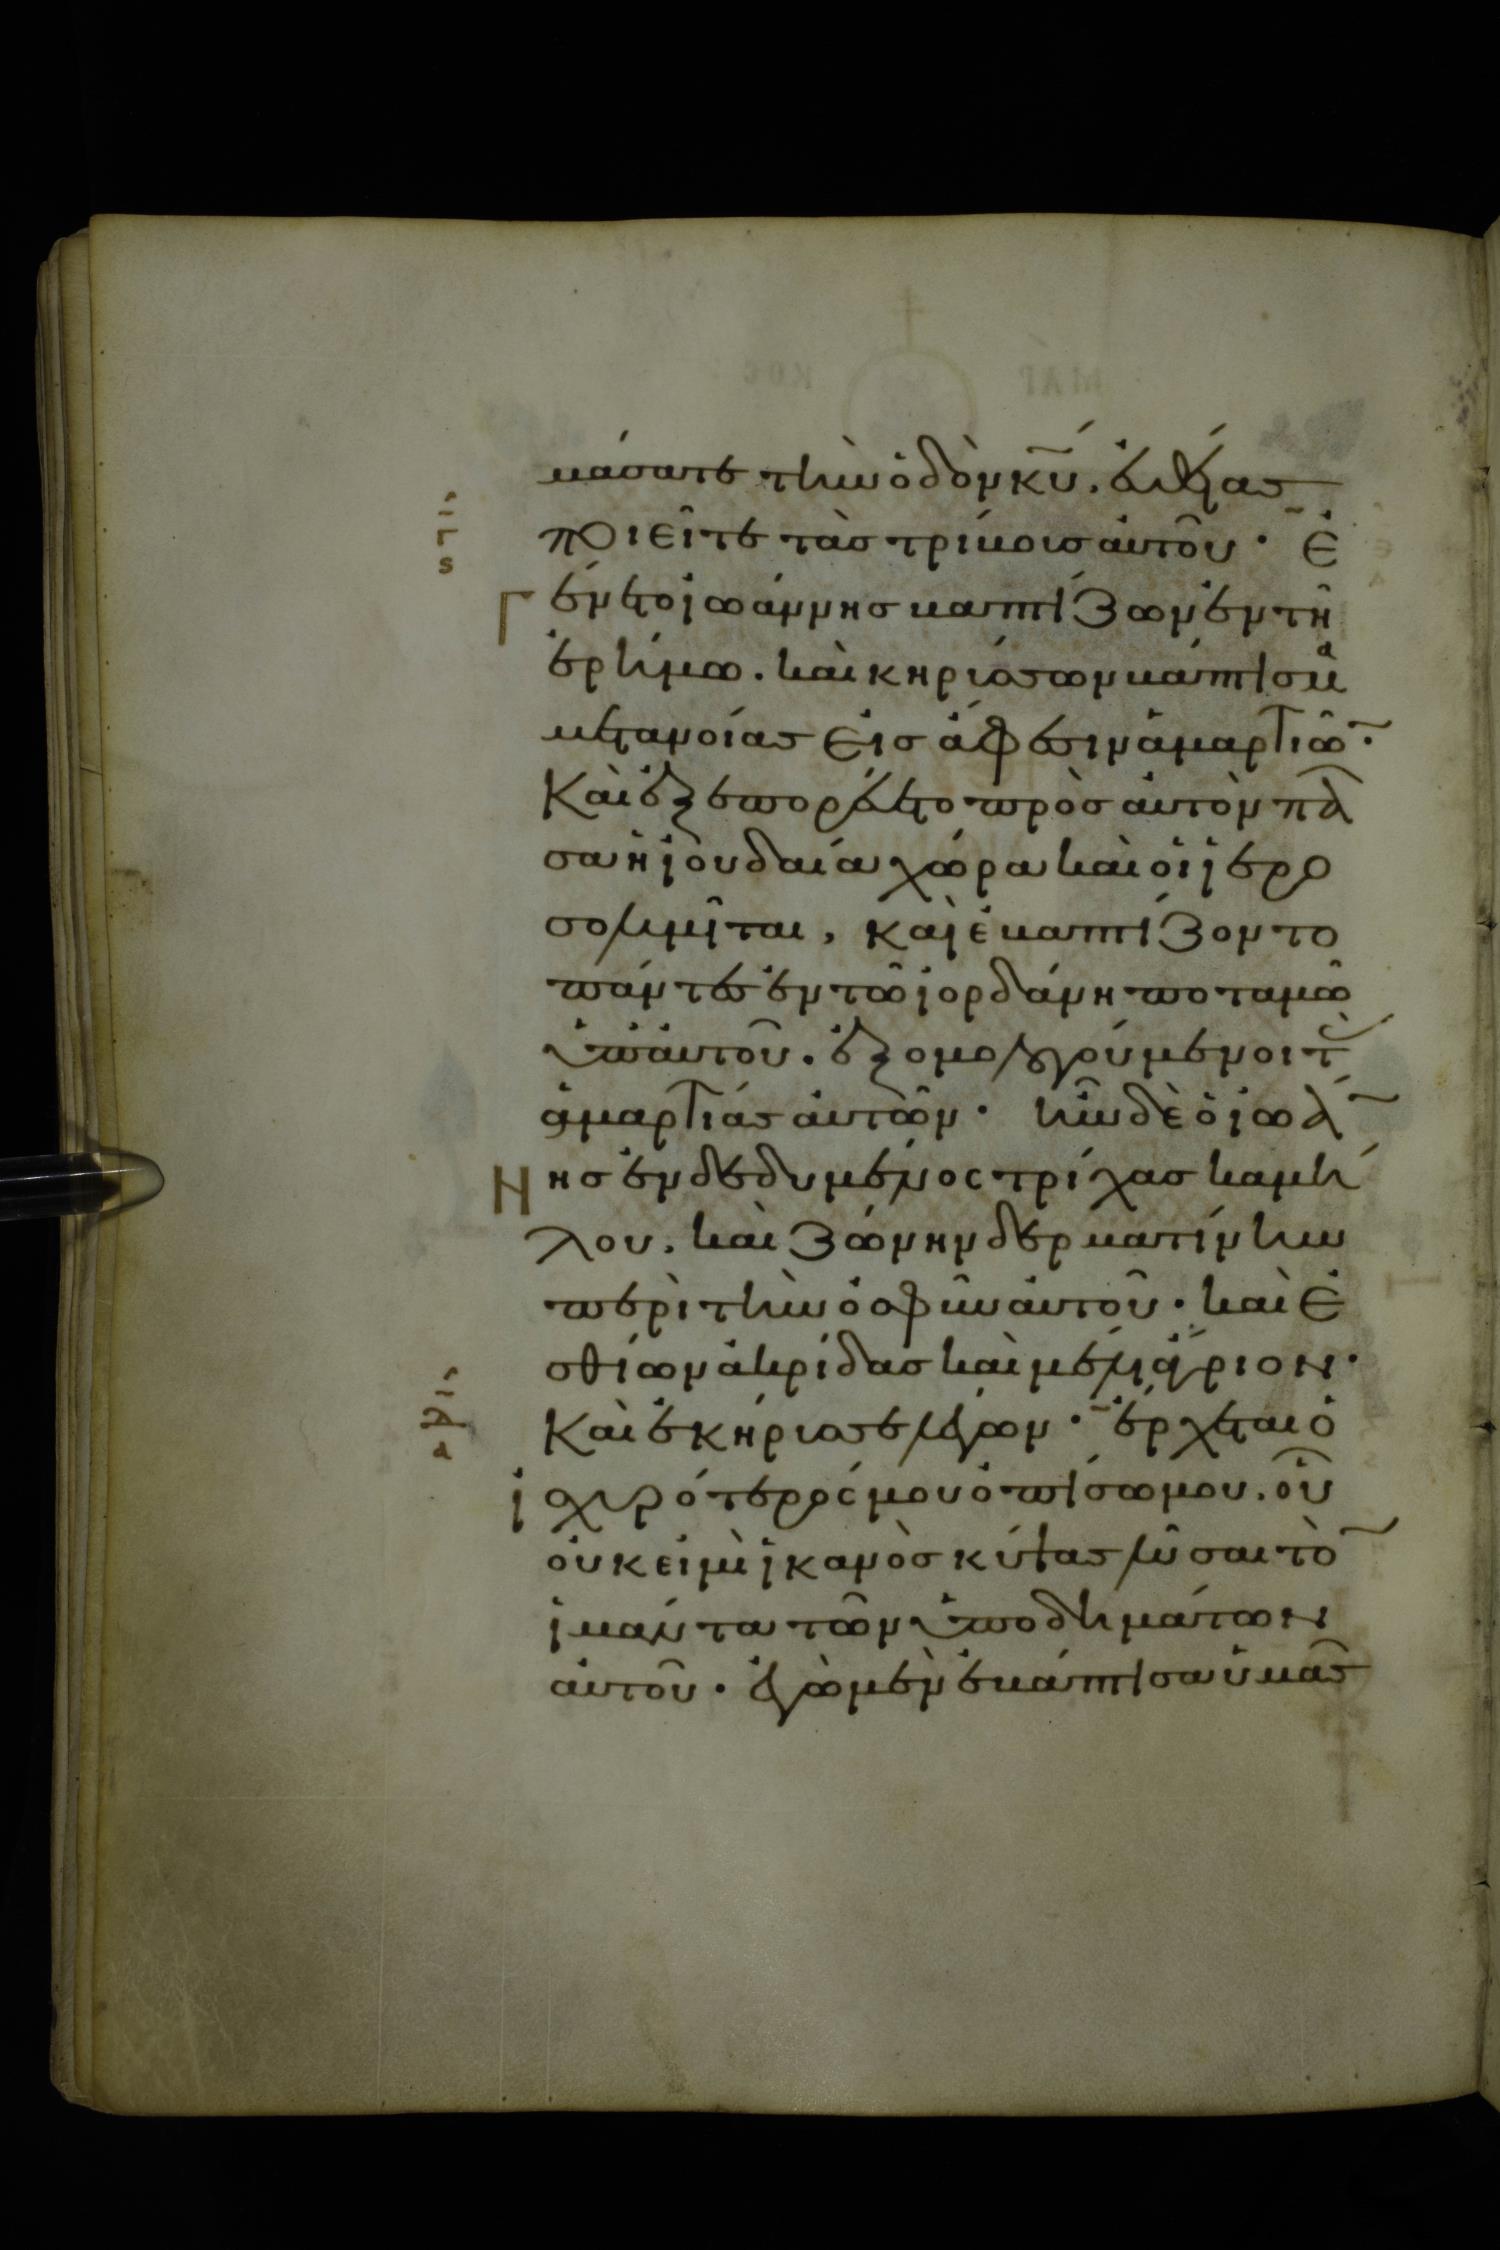 μάσατε τὴν ὁδὸν κ̅υ̅. εὐθείας
ποιεῖτε τὰς τρίβους αὐτοῦ · Ἐ
γένετο ἰωάννης βαπτίζων ἐν τῆ
ἐρήμω. καὶ κηρύσσων βάπτισμα
μετανοίας εἰς ἄφεσιν ἁμαρτιῶ ·
Καὶ ἐξεπορεύετο πρὸς αὐτὸν πᾶ
σα ἡ ἰουδαία χώρα καὶ οἱ ἱερο
σολυμῖται, καὶ ἐβαπτίζοντο
πάντες ἐν τῶ ἰορδάνη ποταμῶ
ὑπ' αὐτοῦ. ἐξομολογούμενοι τ
ἁμαρτίας αὐτῶν · ἦν δὲ ὁ ἰωά
νης ἐνδεδυμένος τρίχας καμή
λου. καὶ ζώνην δερματίνην
περὶ τὴν ὀσφὺν αὐτοῦ · καὶ ἐ
σθίων ἀκρίδας καὶ μέλι ἄγριον ·
Καὶ ἐκήρυσσε λέγων · ἔρχεται ὁ
ἰσχυρότερός μου ὀπίσω μου. οὗ
οὐκ εἰμὶ ἱκανὸς κύψας λῦσαι τὸ
ἱμάντα τῶν ὑποδημάτων
αὐτοῦ · ἐγὼ μὲν ἐβάπτισα ὑμᾶς